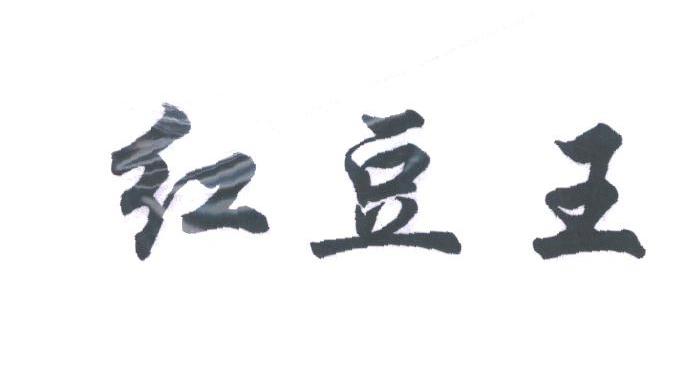 红豆王